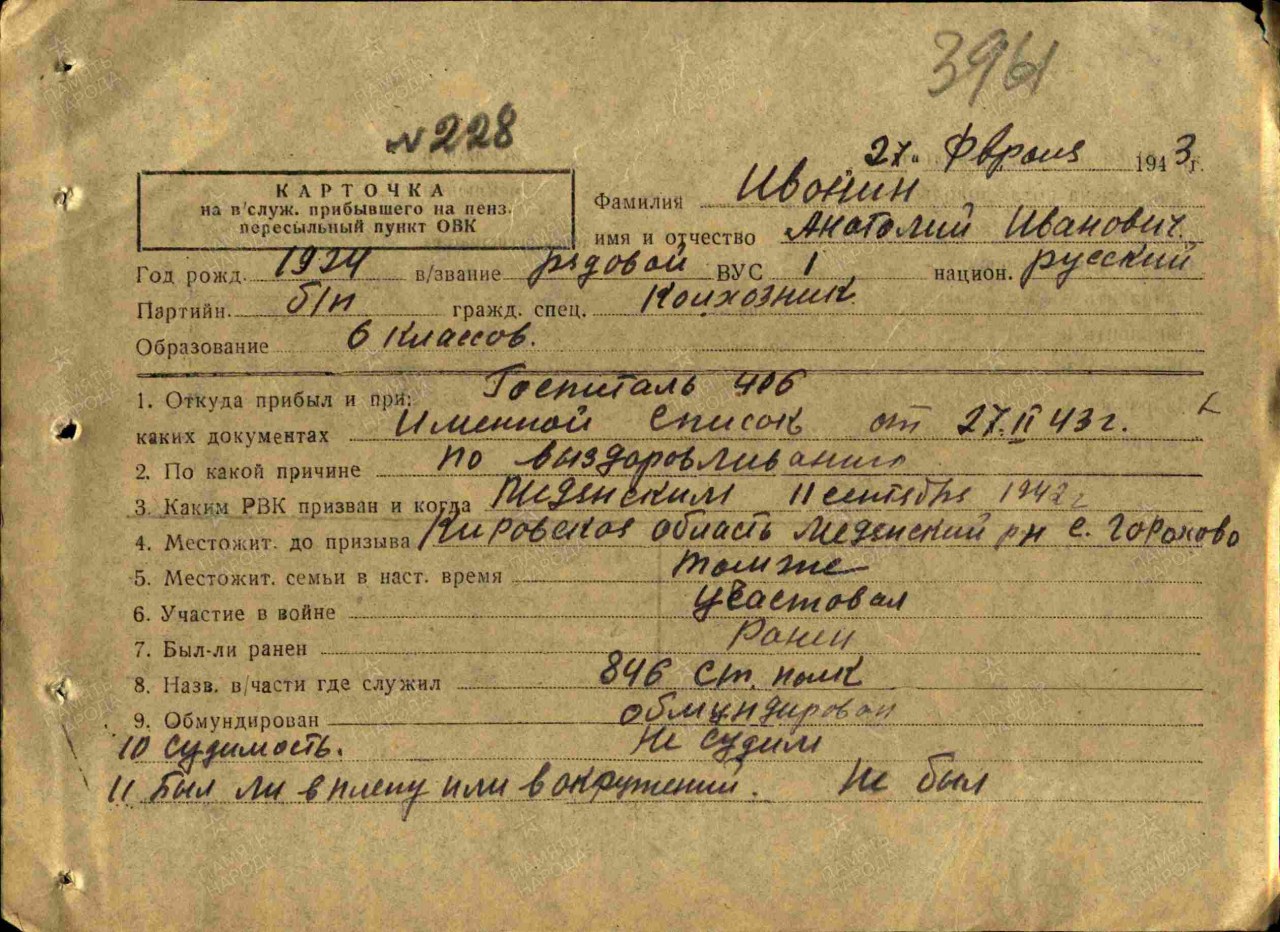 3961
№228
27 " Фвроля 1943 г.
КАРТОЧКА
на в'служ. прибывшего на пенз.
пересыльный пункт ОВК
Фамилия Ивонин
имя и отчество Анатолий Иванович.
Год рожд. 1924 в/звание рядовой ВУС 1 национ. русский
Партийн. б/п гражд. спец. Колхозник
Образование 6 классов.
1. Откуда прибыл и при: Госпиталь 406
каких документах Именной список от 27.II 43 г.
2. По какой причине по выздоровливании
3. Каким РВК призван и когда 11 сентября 1942 г
4. Местожит. до призыва Кировская область рн с. Горохово
5. Местожит. семьи в наст. время тамже
6. Участие в войне участовал
7. Был-ли ранен Ранен
8. Назв. в/части где служил 846 ст. полк
9. Обмундирован обмундирован
10 Судимость. Не судим
11 Был ли в плену или в окружений. Не был
ПАМЯТЬ НАРОДА